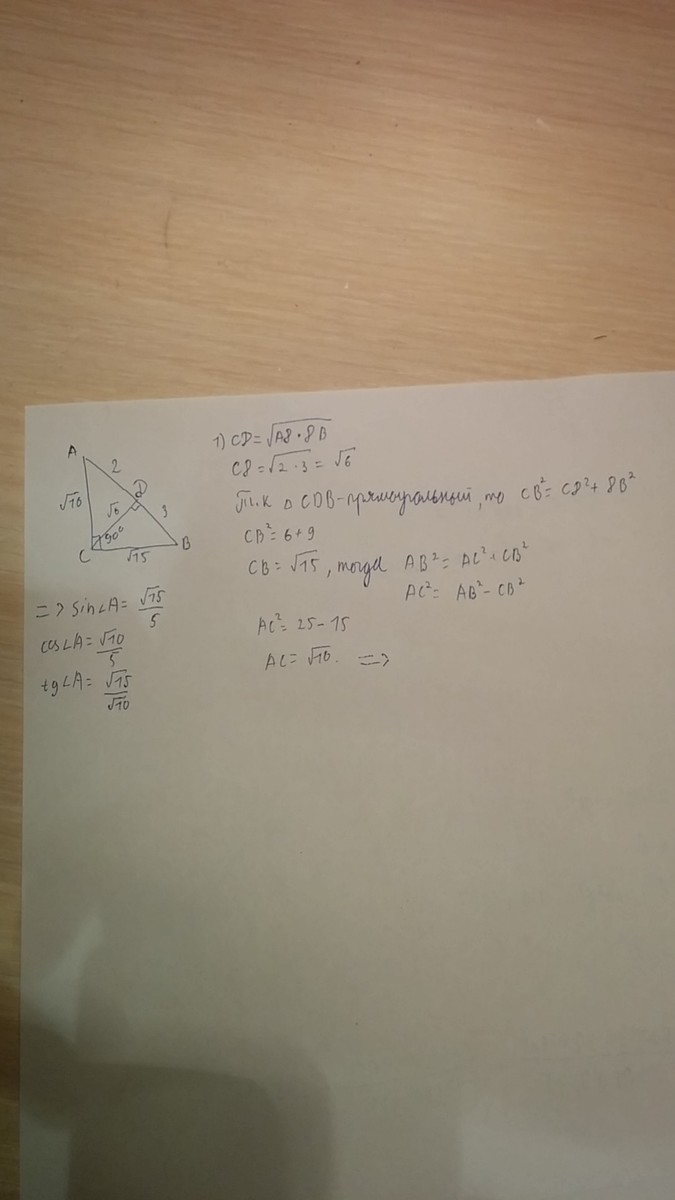 A
2
√10
D
√6
3
C
90°
B
√15
1) CD = √AD · DB
CD = √2 · 3 = √6
Т.к △ CDB - прямоугольный, то CB² = CD² + DB²
CB² = 6 + 9
CB = √15, тогда AB² = AC² + CB²
AC² = AB² - CB²
AC² = 25 - 15
AC = √10. =>
=> sin∠A = √15/5
cos∠A = √10/5
tg∠A = √15/√10